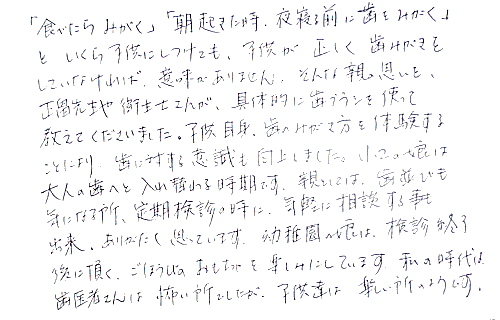 「食べたら みがく」「朝起きた時、夜寝る前に歯をみがく」
と いくら子供にしつけても、子供が 正しく 歯みがきを
していなければ、意味がありません。そんな親の思いを、
先生や 衛生士さんが、具体的に歯ブラシを使って
教えてくださいました。子供自身、歯のみがき方を体験する
ことにより、歯に対する意識も向上しました。小二の娘は
大人の歯へと 入れ替わる時期です。親としては、歯並びも
気になる所、定期検診の時に、気軽に相談する事も
出来、ありがたく思っています。幼稚園の娘は、検診が終了
後に頂く、ごほうびの おもちゃを楽しみにしています。私の時代は
歯医者さんは 怖い所でしたが、子供達は 楽しい所のようです。